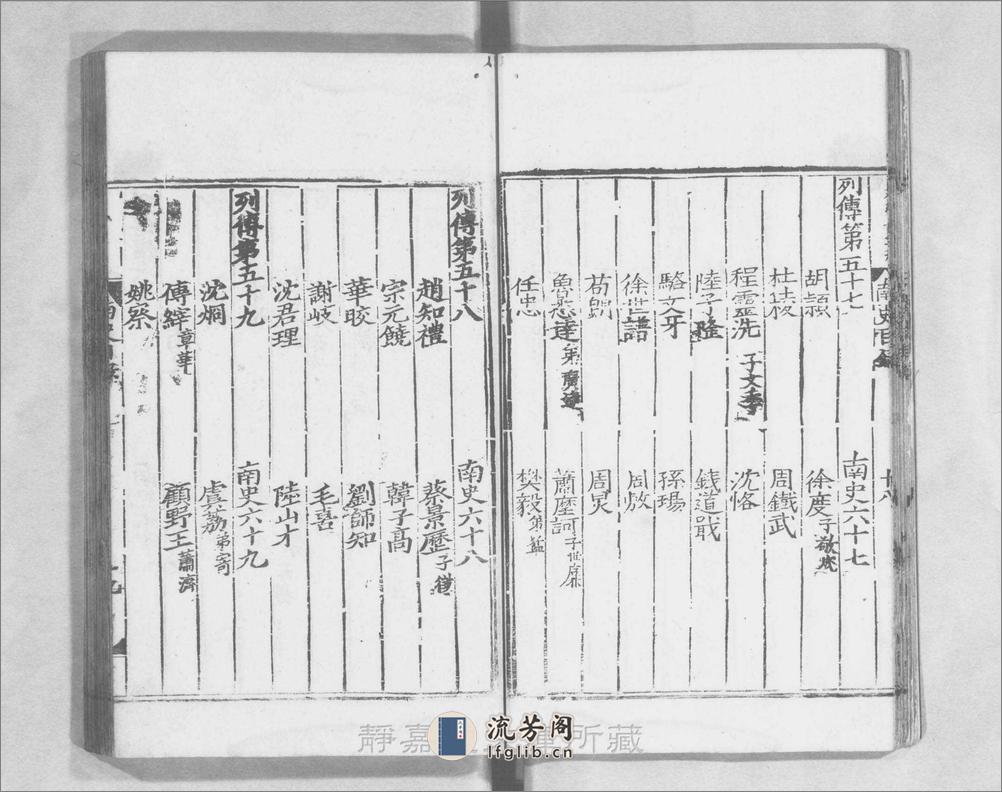 南史目錄 十八
列傳第五十七 南史六十七
胡穎 徐度子敬成
杜稜 周鐵武
程靈洗子文季 沈恪
陸子隆 錢道戢
駱文牙 孫瑒
徐世譜 周敷
荀朗 周炅
魯悉達弟廣達 蕭摩訶子世廉
任忠 樊毅弟猛
列傳第五十八 南史六十八
趙知禮 蔡景歷子徵
宗元饒 韓子高
華皎 劉師知
謝岐 毛喜
沈君理 陸山才
列傳第五十九 南史六十九
沈烱 虞荔弟寄
傅縡章華 顧野王蕭濟
姚察
靜嘉 所藏
流芳阁
lfglib.cn